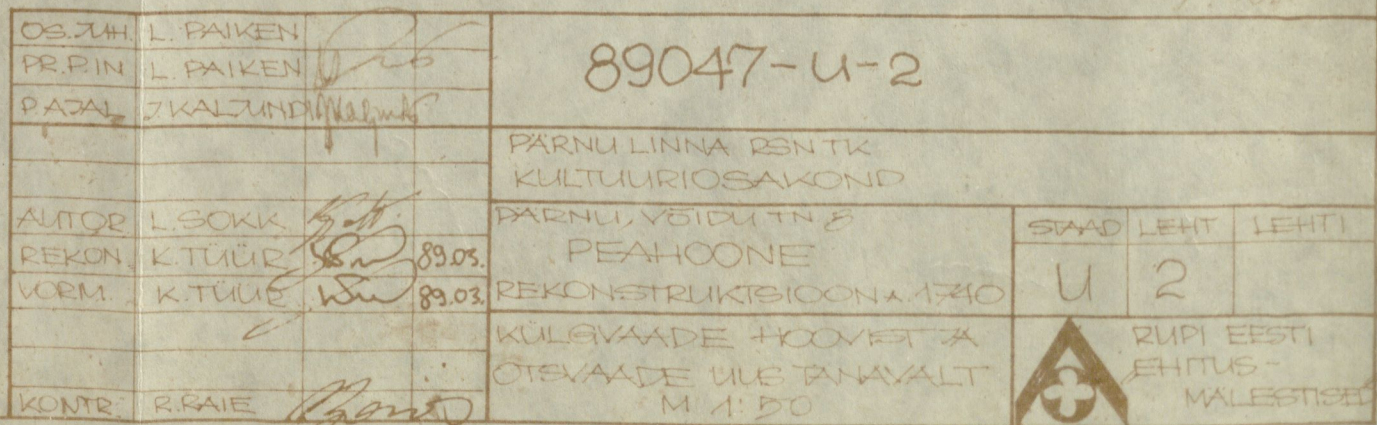 OS.JUH. L. PAIKEN
PR.P.IN L. PAIKEN
P.AJAL J.KALJUNDI
AUTOR L.SOKK
REKON. K.TÜÜR 89.03.
VORM. K.TÜÜR 89.03.
KONTR. R.RAIE
89047-U-2
PÄRNU LINNA RSNTK
KULTUURIOSAKOND
PÄRNU, VÕIDU TN 8
PEAHOONE
REKONSTRUKTSIOON A. 1740
STAAD LEHT LEHTI
U 2
KÜLGVAADE HOOVIST JA
OTSVAADE UUS TÄNAVALT
M 1:50
RUPI EESTI
EHITUS-
MÄLESTISED